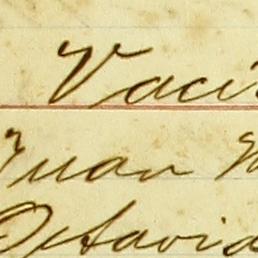 Vaci
Juan M
Octavia